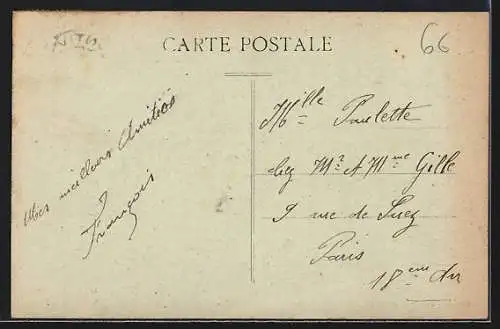 CARTE POSTALE
66
Mes meilleurs Amitiés
François
Mlle Paulette
chez Mr & Mme Gille
9 rue de Suez
Paris
18eme Arr